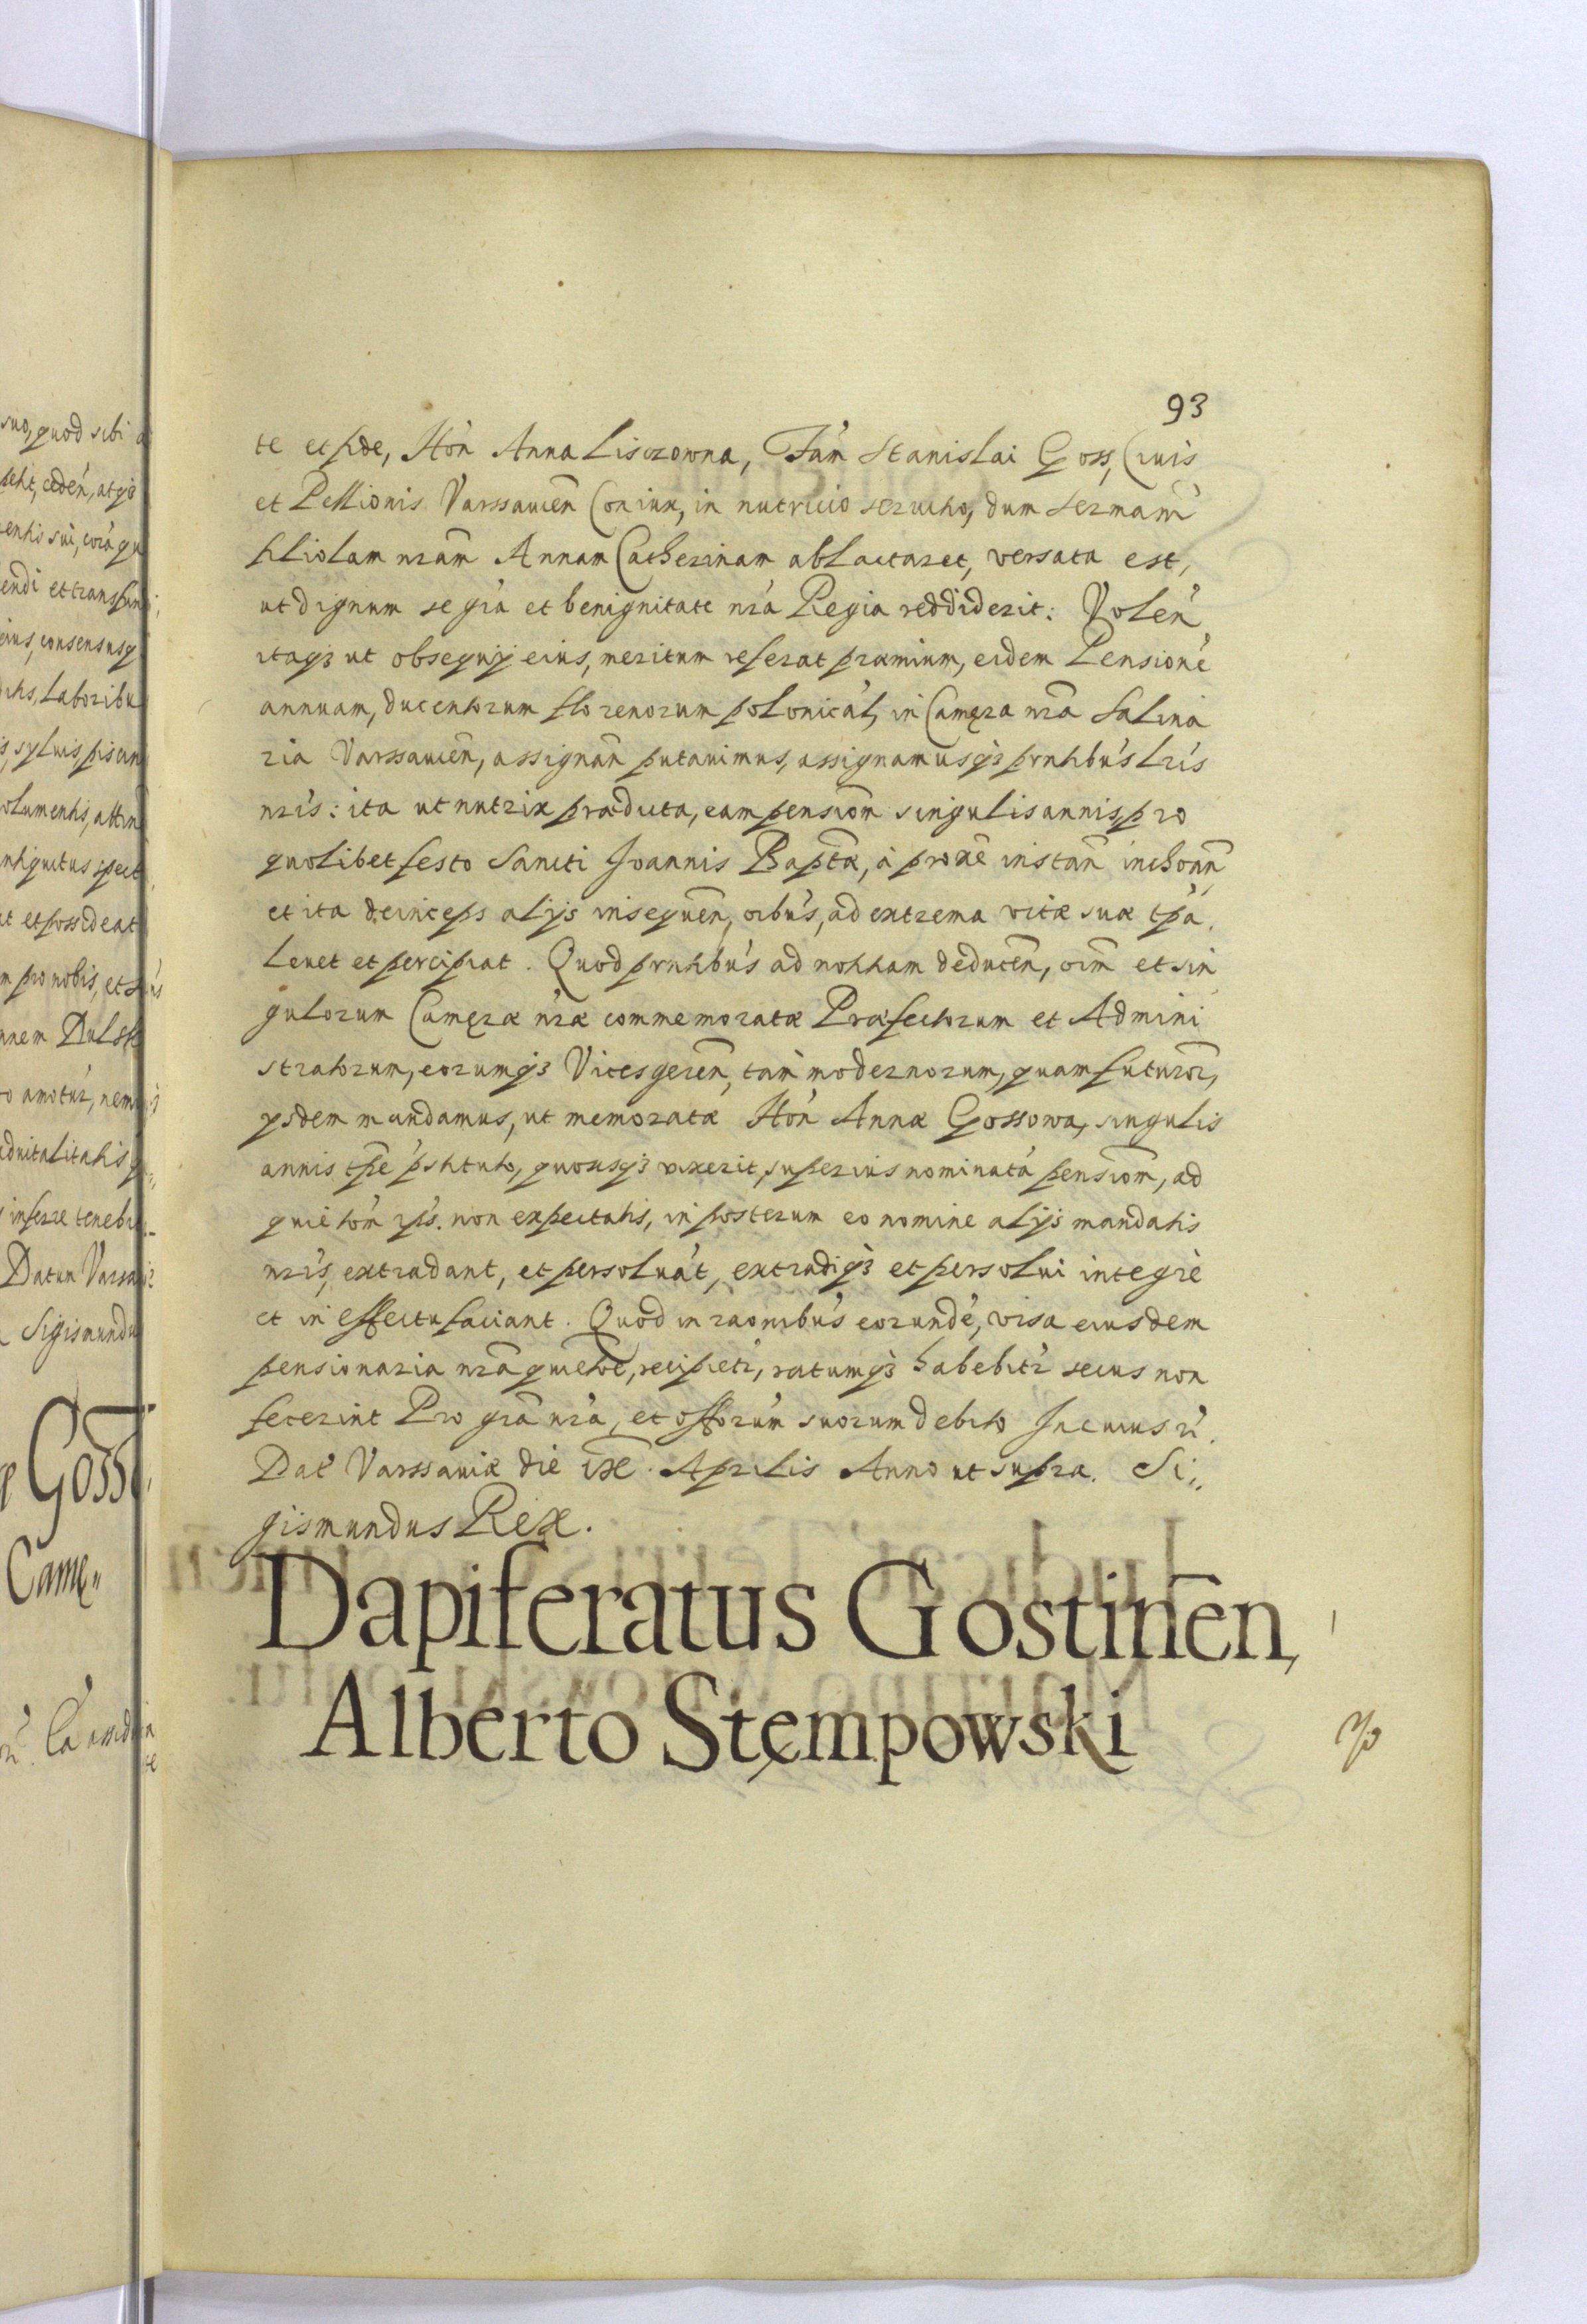 93
te et fide, Hon̄ Anna Lisczowna, Fām Stanislai Goss, Ciuis
et Pellionis Varssauien̄ Coniux, in nutricio seruitio, dum Sermam̄
filiolam nrām Annam Catherinam ablactaret, versata est,
ut dignum se grā et benignitate nrā Regia reddiderit: Volen̄
itaqȝ ut obsequij eius, meritum referat præmium, eidem Pensionē
annuam, ducentorum florenorum polonicāl, in Camęra nrā Salina
ria Varssauien̄, assignan̄ putauimus, assignamusqȝ prntibus lris
nris: ita ut nutrix prædicta, eam pension̄ singulis annis, pro
quolibet festo Sancti Joannis Bapt̄æ, à proxē instan̄ inchoan̄
et ita deinceps alijs insequen̄, oibus, ad extrema vitæ suæ tpa
leuet et percipiat. Quod prntibus ad notitiam deducen̄, oim̄ et sin
gulorum Camęræ nræ commemoratæ Præfectorum et Admini
stratorum, eorumqȝ Vicesgeren̄, tam modernorum, quam futuror,
ysdem mandamus, ut memoratæ Hon̄ Annæ Gossowa, singulis
annis tpe pstituto, quousqȝ vixerit, superius nominatā pension̄, ad
quietom̄ ips. non expectatis, in posterum eo nomine alijs mandatis
nris, extradant, et persoluāt, extradiqȝ et persolui integrè
et in effectu faciant. Quod in raonibus eorundē, visa eiusdem
pensionaria nrā quietoe, recipietr, ratumqȝ habebitr secus non
fecerint Pro grā nrā, et offorūm suorum debito In cuius ri.
Dat Varssauiæ die ix. Aprilis Anno ut supra. Si„
gismundus Rex.
Dapiferatus Gostinēn,
Alberto Stęmpowski